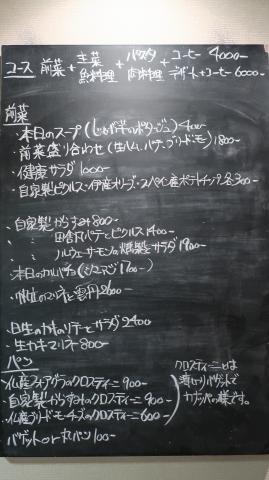 コース 前菜 + 主菜 魚料理 + パスタ 肉料理 + コーヒー 4000-
デザート+コーヒー 6000-
前菜
・本日のスープ(じゃがいものポタージュ) 400-
・前菜盛り合わせ(生ハム、パテ、ブリードモー) 1800-
・健康サラダ 1000-
・自家製ピクルス・伊産オリーブ・スペイン産ポテトチップ 各300-
・自家製からすみ 800-
〃 田舎風パテとピクルス 1400-
〃 ノルウェーサーモンの燻製とサラダ 1900-
・本日のカルパッチョ 1700-
・帆立のマリネと雲丹 2600-
サラダ 2400
・生カキマリネ 800-
パン
・仏産フォアグラのクロスティーニ 900-
・自家製からすみのクロスティーニ 900-
・仏産ブリードモーチーズのクロスティーニ 600-
バゲット or 100-
クロスティーニとは
薄切りバゲットで
カナッペの様です。